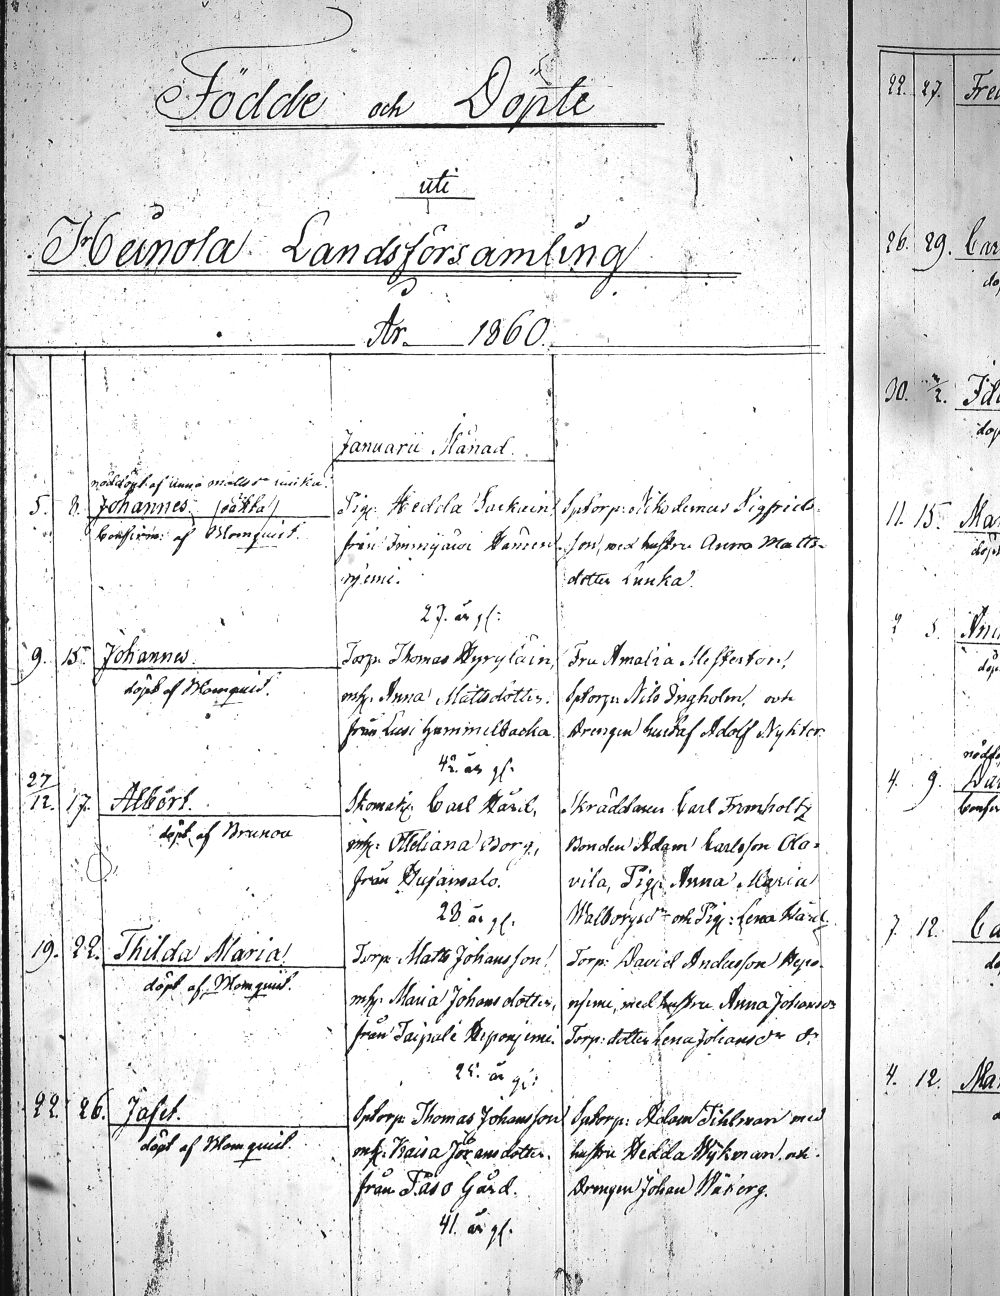 Födde och Döpte
uti
Heinola Landsförsamling
År 1860.
Januarii Månad.
nöddöpt af Anna
5. 8. Johannes (oäkta)
Confirm: af Blomquist.
Pig: Hedda
från
njemi.
27. år gl:
Sptorp: Nikodemus Sigfrids-
son, med hustru Anna Matts-
dotter Lunka.
9. 15. Johannes.
döpt af Blomquist.
Torp: Thomas Hyryläin,
mh: Anna Mattsdotter.
från Lusi Gammelbacka
42. år gl:
Fru Amalia
Sptorp: Nils Ingholm, och
Drengen Gustaf Adolf Nykter.
27/12. 17. Albert.
döpt af Brunou
Skomak: Carl
mh: Otteliana Borg,
från
28 år gl:
Skräddaren Carl Fromholtz
Bonden Adam Carlsson Ola-
vila, Pig: Anna Maria
Walborgsdr och Pig: Lena
19. 22. Thilda Maria.
döpt af Blomquist.
Torp: Matts Johansson,
mh: Maria Johansdotter,
från Taipale Heponjemi.
25. år gl:
Torp: David Andersson Hepo-
njemi, med hustru Anna Johansdr
Torp: dotter Lena Johansdr
22. 26. Jafet.
döpt af Blomquist.
Sptorp: Thomas Johansson
mh: Kaisa Göransdotter.
från Paso Gård.
41. år gl:
Sptorp: Adam Tihlman med
hustru Hedda Wykman, och
Drengen Johan
22. 27.
26. 29.
30.
11. 15.
5.
4. 9.
7. 12.
4. 12.